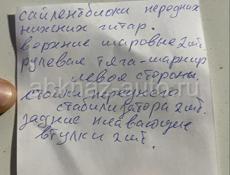 сайлентблоки передних
нижних гитар.
верхние шаровые 2 шт.
рулевая тяга-шарнир
левое стороны
стойки переднего
стабилизатора 2 шт.
задние плавающие
втулки 2 шт.